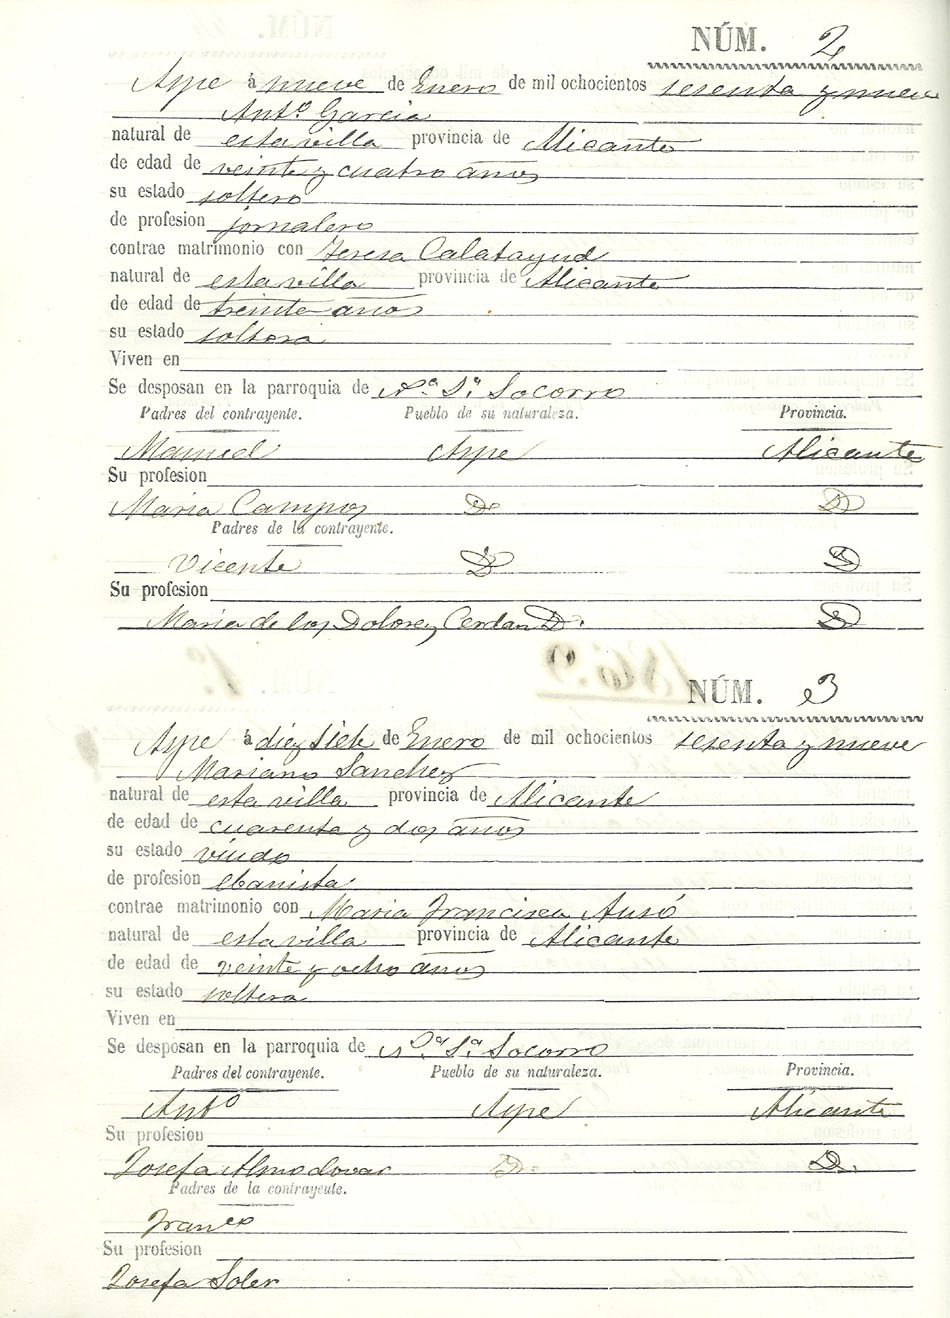 NÚM. 2
Aspe á nueve de Enero de mil ochocientos sesenta y nueve
Antº Garcia
natural de esta villa provincia de Alicante
de edad de veinte y cuatro años
su estado soltero
de profesion jornalero
contrae matrimonio con Teresa Calatayud
natural de esta villa provincia de Alicante
de edad de treinta años
su estado soltera
Viven en
Se desposan en la parroquia de Nª Sª Socorro
Padres del contrayente. Pueblo de su naturaleza. Provincia.
Manuel Aspe Alicante
Su profesion
Maria Campos D D
Padres de la contrayente.
Vicente D D
Su profesion
Maria de los Dolores Cerdan D. D
NÚM. 3
Aspe á diez siete de Enero de mil ochocientos sesenta y nueve
Mariano Sanchez
natural de esta villa provincia de Alicante
de edad de cuarenta y dos años
su estado viudo
de profesion ebanista
contrae matrimonio con Maria Francisca Ausó
natural de esta villa provincia de Alicante
de edad de veinte y ocho años
su estado soltera
Viven en
Se desposan en la parroquia de Nª Sª Socorro
Padres del contrayente. Pueblo de su naturaleza. Provincia.
Antº Aspe Alicante
Su profesion
Josefa Almodovar D. D.
Padres de la contrayente.
Franco
Su profesion
Josefa Soler